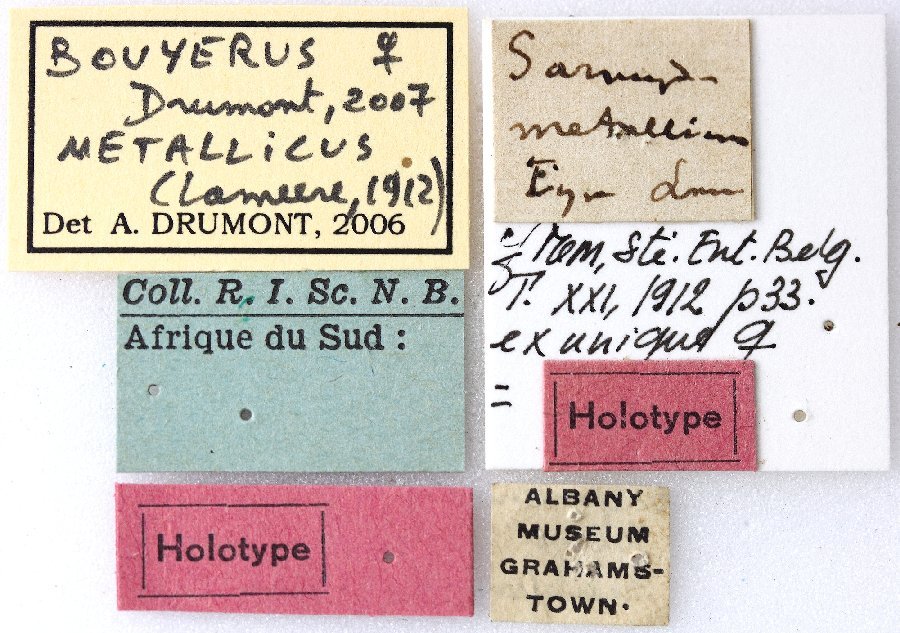 BOUYERUS ♀
Drumont, 2007
METALLICUS
(Lameere, 1912)
Det A. DRUMONT, 2006
Coll. R. I. Sc. N. B.
Afrique du Sud :
Holotype
metallicum
Type
cf Mem, Sté. Ent. Belg.
T. XXI, 1912 p33.
ex unique ♀
=
Holotype
ALBANY
MUSEUM
GRAHAMS-
TOWN.